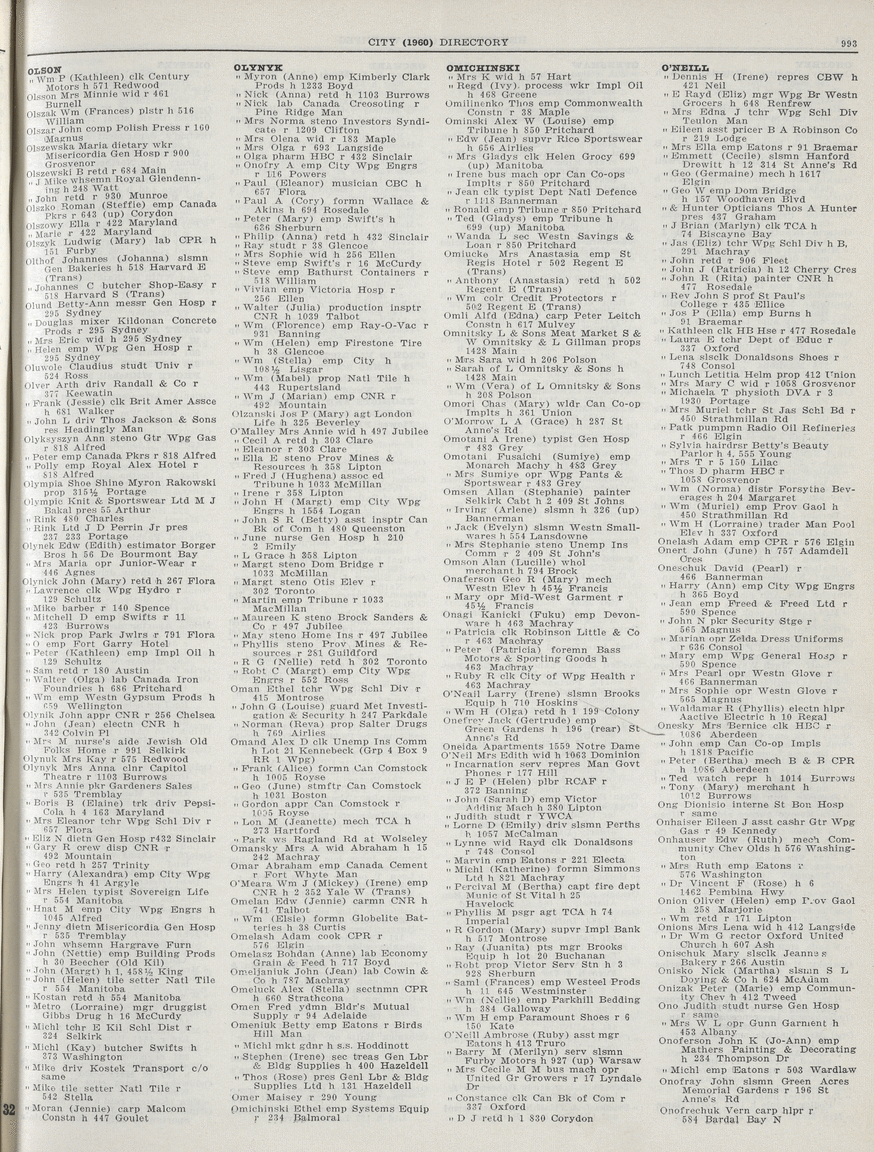 CITY (1960) DIRECTORY
993
OLSON
" Wm P (Kathleen) clk Century
Motors h 571 Redwood
Olsson Mrs Minnie wid r 461
Burnell
Olszak Wm (Frances) plstr h 516
William
Olszar John comp Polish Press r 160
Magnus
Olszewska Maria dietary wkr
Misericordia Gen Hosp r 900
Grosvenor
Olszewski B retd r 684 Main
" J Mike whsemn Royal Glendenn-
ing h 248 Watt
" John retd r 930 Munroe
Olszko Roman (Steffie) emp Canada
Pkrs r 643 (up) Corydon
Olszowy Ella r 422 Maryland
" Marie r 422 Maryland
Olszyk Ludwig (Mary) lab CPR h
151 Furby
Olthof Johannes (Johanna) slsmn
Gen Bakeries h 518 Harvard E
(Trans)
" Johannes C butcher Shop-Easy r
518 Harvard S (Trans)
Olund Betty-Ann messr Gen Hosp r
295 Sydney
" Douglas mixer Kildonan Concrete
Prods r 295 Sydney
" Mrs Eric wid h 295 Sydney
" Helen emp Wpg Gen Hosp r
295 Sydney
Oluwole Claudius studt Univ r
524 Ross
Olver Arth driv Randall & Co r
377 Keewatin
" Frank (Jessie) clk Brit Amer Assce
h 681 Walker
" John L driv Thos Jackson & Sons
res Headingly Man
Olyksyszyn Ann steno Gtr Wpg Gas
r 818 Alfred
" Peter emp Canada Pkrs r 818 Alfred
" Polly emp Royal Alex Hotel r
818 Alfred
Olympia Shoe Shine Myron Rakowski
prop 315½ Portage
Olympic Knit & Sportswear Ltd M J
Bakal pres 55 Arthur
" Rink 480 Charles
" Rink Ltd J D Perrin Jr pres
237 233 Portage
Olynek Edw (Edith) estimator Borger
Bros h 56 De Bourmont Bay
" Mrs Maria opr Junior-Wear r
446 Agnes
Olynick John (Mary) retd h 267 Flora
" Lawrence clk Wpg Hydro r
129 Schultz
" Mike barber r 140 Spence
" Mitchell D emp Swifts r 11
423 Burrows
" Nick prop Park Jwlrs r 791 Flora
" O emp Fort Garry Hotel
" Peter (Kathleen) emp Impl Oil h
129 Schultz
" Sam retd r 180 Austin
" Walter (Olga) lab Canada Iron
Foundries h 686 Pritchard
" Wm emp Western Gypsum Prods h
659 Wellington
Olynik John appr CNR r 256 Chelsea
" John (Jean) electn CNR h
342 Colvin Pl
" Mrs M nurse's aide Jewish Old
Folks Home r 991 Selkirk
Olynuk Mrs Kay r 575 Redwood
Olynyk Mrs Anna clnr Capitol
Theatre r 1103 Burrows
" Mrs Annie pkr Gardeners Sales
r 535 Tremblay
" Boris B (Elaine) trk driv Pepsi-
Cola h 4 163 Maryland
" Mrs Eleanor tchr Wpg Schl Div r
657 Flora
" Eliz N dietn Gen Hosp r432 Sinclair
" Gary R crew disp CNR r
492 Mountain
" Geo retd h 257 Trinity
" Harry (Alexandra) emp City Wpg
Engrs h 41 Argyle
" Mrs Helen typist Sovereign Life
r 554 Manitoba
" Hnat M emp City Wpg Engrs h
1045 Alfred
" Jenny dietn Misericordia Gen Hosp
r 535 Tremblay
" John whsemn Hargrave Furn
" John (Nettie) emp Building Prods
h 30 Beecher (Old Kil)
" John (Margt) h 1, 458½ King
" John (Helen) tile setter Natl Tile
r 554 Manitoba
" Kostan retd h 554 Manitoba
" Metro (Lorraine) mgr druggist
Gibbs Drug h 16 McCurdy
" Michl tchr E Kil Schl Dist r
324 Selkirk
" Michl (Kay) butcher Swifts h
373 Washington
" Mike driv Kostek Transport c/o
same
" Mike tile setter Natl Tile r
542 Stella
" Moran (Jennie) carp Malcom
Constn h 447 Goulet
32
OLYNYK
" Myron (Anne) emp Kimberly Clark
Prods h 1233 Boyd
" Nick (Anna) retd h 1103 Burrows
" Nick lab Canada Creosoting r
Pine Ridge Man
" Mrs Norma steno Investors Syndi-
cate r 1209 Clifton
" Mrs Olena wid r 183 Maple
" Mrs Olga r 693 Langside
" Olga pharm HBC r 432 Sinclair
" Onofry A emp City Wpg Engrs
r 116 Powers
" Paul (Eleanor) musician CBC h
657 Flora
" Paul A (Cory) formn Wallace &
Akins h 694 Rosedale
" Peter (Mary) emp Swift's h
636 Sherburn
" Philip (Anna) retd h 432 Sinclair
" Ray studt r 38 Glencoe
" Mrs Sophie wid h 256 Ellen
" Steve emp Swift's r 16 McCurdy
" Steve emp Bathurst Containers r
518 William
" Vivian emp Victoria Hosp r
256 Ellen
" Walter (Julia) production insptr
CNR h 1039 Talbot
" Wm (Florence) emp Ray-O-Vac r
931 Banning
" Wm (Helen) emp Firestone Tire
h 38 Glencoe
" Wm (Stella) emp City h
108½ Lisgar
" Wm (Mabel) prop Natl Tile h
443 Rupertsland
" Wm J (Marian) emp CNR r
492 Mountain
Olzanski Jos P (Mary) agt London
Life h 325 Beverley
O'Malley Mrs Annie wid h 497 Jubilee
" Cecil A retd h 303 Clare
" Eleanor r 303 Clare
" Ella E steno Prov Mines &
Resources h 358 Lipton
" Fred J (Hughena) assoc ed
Tribune h 1033 McMillan
" Irene r 358 Lipton
" John H (Margt) emp City Wpg
Engrs h 1554 Logan
" John S R (Betty) asst insptr Can
Bk of Com h 480 Queenston
" June nurse Gen Hosp h 210
2 Emily
" L Grace h 358 Lipton
" Margt steno Dom Bridge r
1033 McMillan
" Margt steno Otis Elev r
302 Toronto
" Martin emp Tribune r 1033
MacMillan
" Maureen K steno Brock Sanders &
Co r 497 Jubilee
" May steno Home Ins r 497 Jubilee
" Phyllis steno Prov Mines & Re-
sources r 281 Guildford
" R G (Nellie) retd h 302 Toronto
" Robt C (Margt) emp City Wpg
Engrs r 552 Ross
Oman Ethel tchr Wpg Schl Div r
415 Montrose
" John G (Louise) guard Met Investi-
gation & Security h 247 Parkdale
" Norman (Reva) prop Salter Drugs
h 769 Airlies
Omand Alex D clk Unemp Ins Comm
h Lot 21 Kennebeck (Grp 4 Box 9
RR 1 Wpg)
" Frank (Alice) formn Can Comstock
h 1005 Royse
" Geo (June) stmftr Can Comstock
h 1031 Boston
" Gordon appr Can Comstock r
1005 Royse
" Lon M (Jeanette) mech TCA h
273 Hartford
" Park ws Ragland Rd at Wolseley
Omansky Mrs A wid Abraham h 15
242 Machray
Omar Abraham emp Canada Cement
r Fort Whyte Man
O'Meara Wm J (Mickey) (Irene) emp
CNR h 2 352 Yale W (Trans)
Omelan Edw (Jennie) carmn CNR h
741 Talbot
" Wm (Elsie) formn Globelite Bat-
teries h 38 Curtis
Omelash Adam cook CPR r
576 Elgin
Omelasz Bohdan (Anne) lab Economy
Grain & Feed h 717 Boyd
Omeljaniuk John (Jean) lab Cowin &
Co h 787 Machray
Omeluck Alex (Stella) sectnmn CPR
h 660 Strathcona
Omen Fred ydmn Bldr's Mutual
Supply r 94 Adelaide
Omeniuk Betty emp Eatons r Birds
Hill Man
" Michl mkt gdnr h s.s. Hoddinott
" Stephen (Irene) sec treas Gen Lbr
& Bldg Supplies h 400 Hazeldell
" Thos (Rose) pres Genl Lbr & Bldg
Supplies Ltd h 131 Hazeldell
Omer Maisey r 290 Young
Omichinski Ethel emp Systems Equip
r 234 Balmoral
OMICHINSKI
" Mrs K wid h 57 Hart
" Regd (Ivy) process wkr Impl Oil
h 468 Greene
Omilinenko Thos emp Commonwealth
Constn r 38 Maple
Ominski Alex W (Louise) emp
Tribune h 850 Pritchard
" Edw (Jean) supvr Rice Sportswear
h 656 Airlies
" Mrs Gladys clk Helen Grocy 699
(up) Manitoba
" Irene bus mach opr Can Co-ops
Implts r 850 Pritchard
" Jean clk typist Dept Natl Defence
r 1118 Bannerman
" Ronald emp Tribune r 850 Pritchard
" Ted (Gladys) emp Tribune h
699 (up) Manitoba
" Wanda L sec Westn Savings &
Loan r 850 Pritchard
Omiucke Mrs Anastasia emp St
Regis Hotel r 502 Regent E
(Trans)
" Anthony (Anastasia) retd h 502
Regent E (Trans)
" Wm colr Credit Protectors r
502 Regent E (Trans)
Omli Alfd (Edna) carp Peter Leitch
Constn h 617 Mulvey
Omnitsky L & Sons Meat Market S &
W Omnitsky & L Gillman props
1428 Main
" Mrs Sara wid h 206 Polson
" Sarah of L Omnitsky & Sons h
1428 Main
" Wm (Vera) of L Omnitsky & Sons
h 208 Polson
Omori Chas (Mary) wldr Can Co-op
Implts h 361 Union
O'Morrow L A (Grace) h 287 St
Anne's Rd
Omotani A Irene) typist Gen Hosp
r 483 Grey
Omotani Fusaichi (Sumiye) emp
Monarch Machy h 483 Grey
" Mrs Sumiye opr Wpg Pants &
Sportswear r 483 Grey
Omsen Allan (Stephanie) painter
Selkirk Cabt h 2 409 St Johns
" Irving (Arlene) slsmn h 326 (up)
Bannerman
" Jack (Evelyn) slsmn Westn Small-
wares h 554 Lansdowne
" Mrs Stephanie steno Unemp Ins
Comm r 2 409 St John's
Omson Alan (Lucille) whol
merchant h 794 Brock
Onaferson Geo R (Mary) mech
Westn Elev h 45½ Francis
" Mary opr Mid-West Garment r
45½ Francis
Onagi Kanicki (Fuku) emp Devon-
ware h 463 Machray
" Patricia clk Robinson Little & Co
r 463 Machray
" Peter (Patricia) foremn Bass
Motors & Sporting Goods h
463 Machray
" Ruby R clk City of Wpg Health r
463 Machray
O'Neail Larry (Irene) slsmn Brooks
Equip h 710 Hoskins
" Wm H (Olga) retd h 1 199 Colony
Onefrey Jack (Gertrude) emp
Green Gardens h 196 (rear) St
Anne's Rd
Oneida Apartments 1559 Notre Dame
O'Neil Mrs Edith wid h 1063 Dominion
" Incarnation serv repres Man Govt
Phones r 177 Hill
" J E P (Helen) plbr RCAF r
372 Banning
" John (Sarah D) emp Victor
Adding Mach h 380 Lipton
" Judith studt r YWCA
" Lorne D (Emily) driv slsmn Perths
h 1057 McCalman
" Lynne wid Rayd clk Donaldsons
r 748 Consol
" Marvin emp Eatons r 221 Electa
" Michl (Katherine) formn Simmons
Ltd h 821 Machray
" Percival M (Bertha) capt fire dept
Munic of St Vital h 25
Havelock
" Phyllis M psgr agt TCA h 74
Imperial
" R Gordon (Mary) supvr Impl Bank
h 517 Montrose
" Ray (Juanita) pts mgr Brooks
Equip h lot 20 Buchanan
" Robt prop Victor Serv Stn h 3
928 Sherburn
" Saml (Frances) emp Westeel Prods
h 11 645 Westminster
" Wm (Nellie) emp Parkhill Bedding
h 384 Galloway
" Wm H emp Paramount Shoes r 6
150 Kate
O'Neill Ambrose (Ruby) asst mgr
Eatons h 413 Truro
" Barry M (Merilyn) serv slsmn
Furby Motors h 927 (up) Warsaw
" Mrs Cecile M M bus mach opr
United Gr Growers r 17 Lyndale
Dr
" Constance clk Can Bk of Com r
337 Oxford
" D J retd h 1 830 Corydon
O'NEILL
" Dennis H (Irene) repres CBW h
421 Neil
" E Rayd (Eliz) mgr Wpg Br Westn
Grocers h 648 Renfrew
" Mrs Edna J tchr Wpg Schl Div
Teulon Man
" Eileen asst pricer B A Robinson Co
r 219 Lodge
" Mrs Ella emp Eatons r 91 Braemar
" Emmett (Cecile) slsmn Hanford
Drewitt h 12 314 St Anne's Rd
" Geo (Germaine) mech h 1617
Elgin
" Geo W emp Dom Bridge
h 157 Woodhaven Blvd
" & Hunter Opticians Thos A Hunter
pres 437 Graham
" J Brian (Marlyn) clk TCA h
74 Biscayne Bay
" Jas (Eliz) tchr Wpg Schl Div h B,
291 Machray
" John retd r 906 Fleet
" John J (Patricia) h 12 Cherry Cres
" John R (Rita) painter CNR h
477 Rosedale
" Rev John S prof St Paul's
College r 435 Ellice
" Jos P (Ella) emp Burns h
91 Braemar
" Kathleen clk HB Hse r 477 Rosedale
" Laura E tchr Dept of Educ r
337 Oxford
" Lena slsclk Donaldsons Shoes r
748 Consol
" Lunch Letitia Helm prop 412 Union
" Mrs Mary C wid r 1058 Grosvenor
" Michaela T physioth DVA r 3
1930 Portage
" Mrs Muriel tchr St Jas Schl Bd r
450 Strathmillan Rd
" Patk pumpmn Radio Oil Refineries
r 466 Elgin
" Sylvia hairdrsr Betty's Beauty
Parlor h 4, 555 Young
" Mrs T r 5 150 Lilac
" Thos D pharm HBC r
1058 Grosvenor
" Wm (Norma) distr Forsythe Bev-
erages h 204 Margaret
" Wm (Muriel) emp Prov Gaol h
450 Strathmillan Rd
" Wm H (Lorraine) trader Man Pool
Elev h 337 Oxford
Onelash Adam emp CPR r 576 Elgin
Onert John (June) h 757 Adamdell
Cres
Oneschuk David (Pearl) r
466 Bannerman
" Harry (Ann) emp City Wpg Engrs
h 365 Boyd
" Jean emp Freed & Freed Ltd r
590 Spence
" John N pkr Security Stge r
565 Magnus
" Marian opr Zelda Dress Uniforms
r 636 Consol
" Mary emp Wpg General Hosp r
590 Spence
" Mrs Pearl opr Westn Glove r
466 Bannerman
" Mrs Sophie opr Westn Glove r
565 Magnus
" Waldamar R (Phyllis) electn hlpr
Aactive Electric h 10 Regal
Onesky Mrs Bernice clk HBC r
1086 Aberdeen
" John emp Can Co-op Impls
h 1818 Pacific
" Peter (Bertha) mech B & B CPR
h 1086 Aberdeen
" Ted watch repr h 1014 Burrows
" Tony (Mary) merchant h
1012 Burrows
Ong Dionisio interne St Bon Hosp
r same
Onhaiser Eileen J asst cashr Gtr Wpg
Gas r 49 Kennedy
Onhauser Edw (Ruth) mech Com-
munity Chev Olds h 576 Washing-
ton
" Mrs Ruth emp Eatons r
576 Washington
" Dr Vincent F (Rose) h 6
1462 Pembina Hwy
Onion Oliver (Helen) emp Prov Gaol
h 258 Marjorie
" Wm retd r 171 Lipton
Onions Mrs Lena wid h 412 Langside
" Dr Wm G rector Oxford United
Church h 607 Ash
Onischuk Mary slsclk Jeannes
Bakery r 266 Austin
Onisko Nick (Martha) slsmn S L
Doying & Co h 624 McAdam
Onizak Peter (Marie) emp Commun-
ity Chev h 412 Tweed
Ono Judith studt nurse Gen Hosp
r same
" Mrs W L opr Gunn Garment h
453 Albany
Onoferson John K (Jo-Ann) emp
Mathers Painting & Decorating
h 234 Thompson Dr
" Michl emp Eatons r 503 Wardlaw
Onofray John slsmn Green Acres
Memorial Gardens r 196 St
Anne's Rd
Onofrechuk Vern carp hlpr r
584 Bardal Bay N